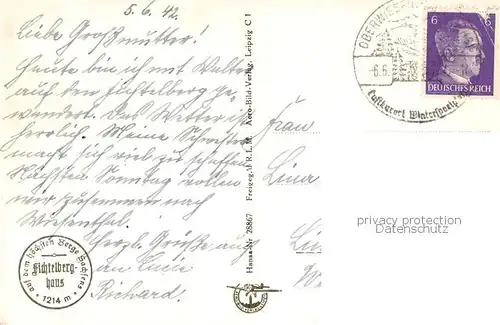 5. 6. 42.
Liebe Großmutter!
Heute bin ich mit Walter
auf den Fichtelberg ge-
wandert. Das Wetter ist
herrlich. Meine Schwester
macht sich viel zu schaffen.
Nächsten Sonntag wollen
wir zusammen nach
Wiesenthal.
Herzl. Grüße aus
Richard.
auf dem höchsten Berge Sachsens
Fichtelberg-
haus
· 1214 m ·
Hansa-Nr. 28867 Freigeg. d. R. L. M. Aero-Bild-Verlag, Leipzig C 1
Frau
Lina
OBERWIESEN
-6.6.
Luftkurort Wintersportpl
6 6
DEUTSCHES REICH
privacy protection
Datenschutz